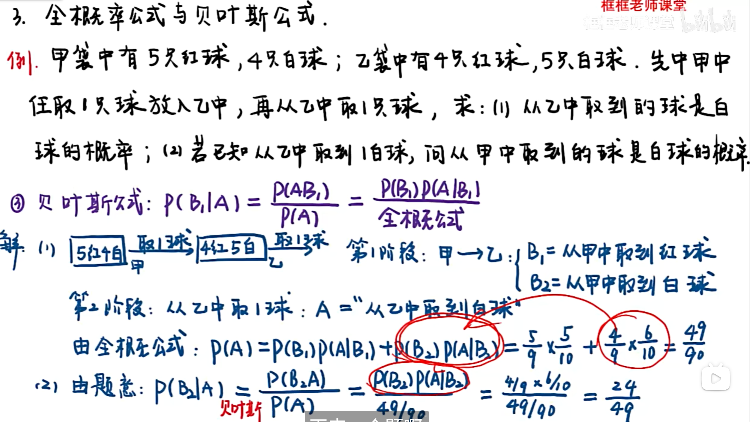 3. 全概率公式与贝叶斯公式.
框框老师课堂
例. 甲袋中有5只红球,4只白球;乙袋中有4只红球,5只白球.先中甲中
任取1只球放入乙中,再从乙中取1只球,求:(1) 从乙中取到的球是白
球的概率;(2)若已知从乙中取到1白球,问从甲中取到的球是白球的概率.
③ 贝叶斯公式: P(B₁|A) = P(AB₁)/P(A) = P(B₁)P(A|B₁)/全概率公式
解: (1) 5红4白 取1球 甲 4红5白 取1球 乙 第1阶段: 甲→乙: B₁=从甲中取到红球
B₂=从甲中取到白球
第2阶段: 从乙中取1球: A="从乙中取到白球"
由全概率公式: P(A)=P(B₁)P(A|B₁)+P(B₂)P(A|B₂)=5/9×5/10+4/9×6/10=49/90
(2) 由题意: P(B₂|A) = P(B₂A)/P(A) = P(B₂)P(A|B₂)/49/90 = 4/9×6/10/49/90 = 24/49
贝叶斯